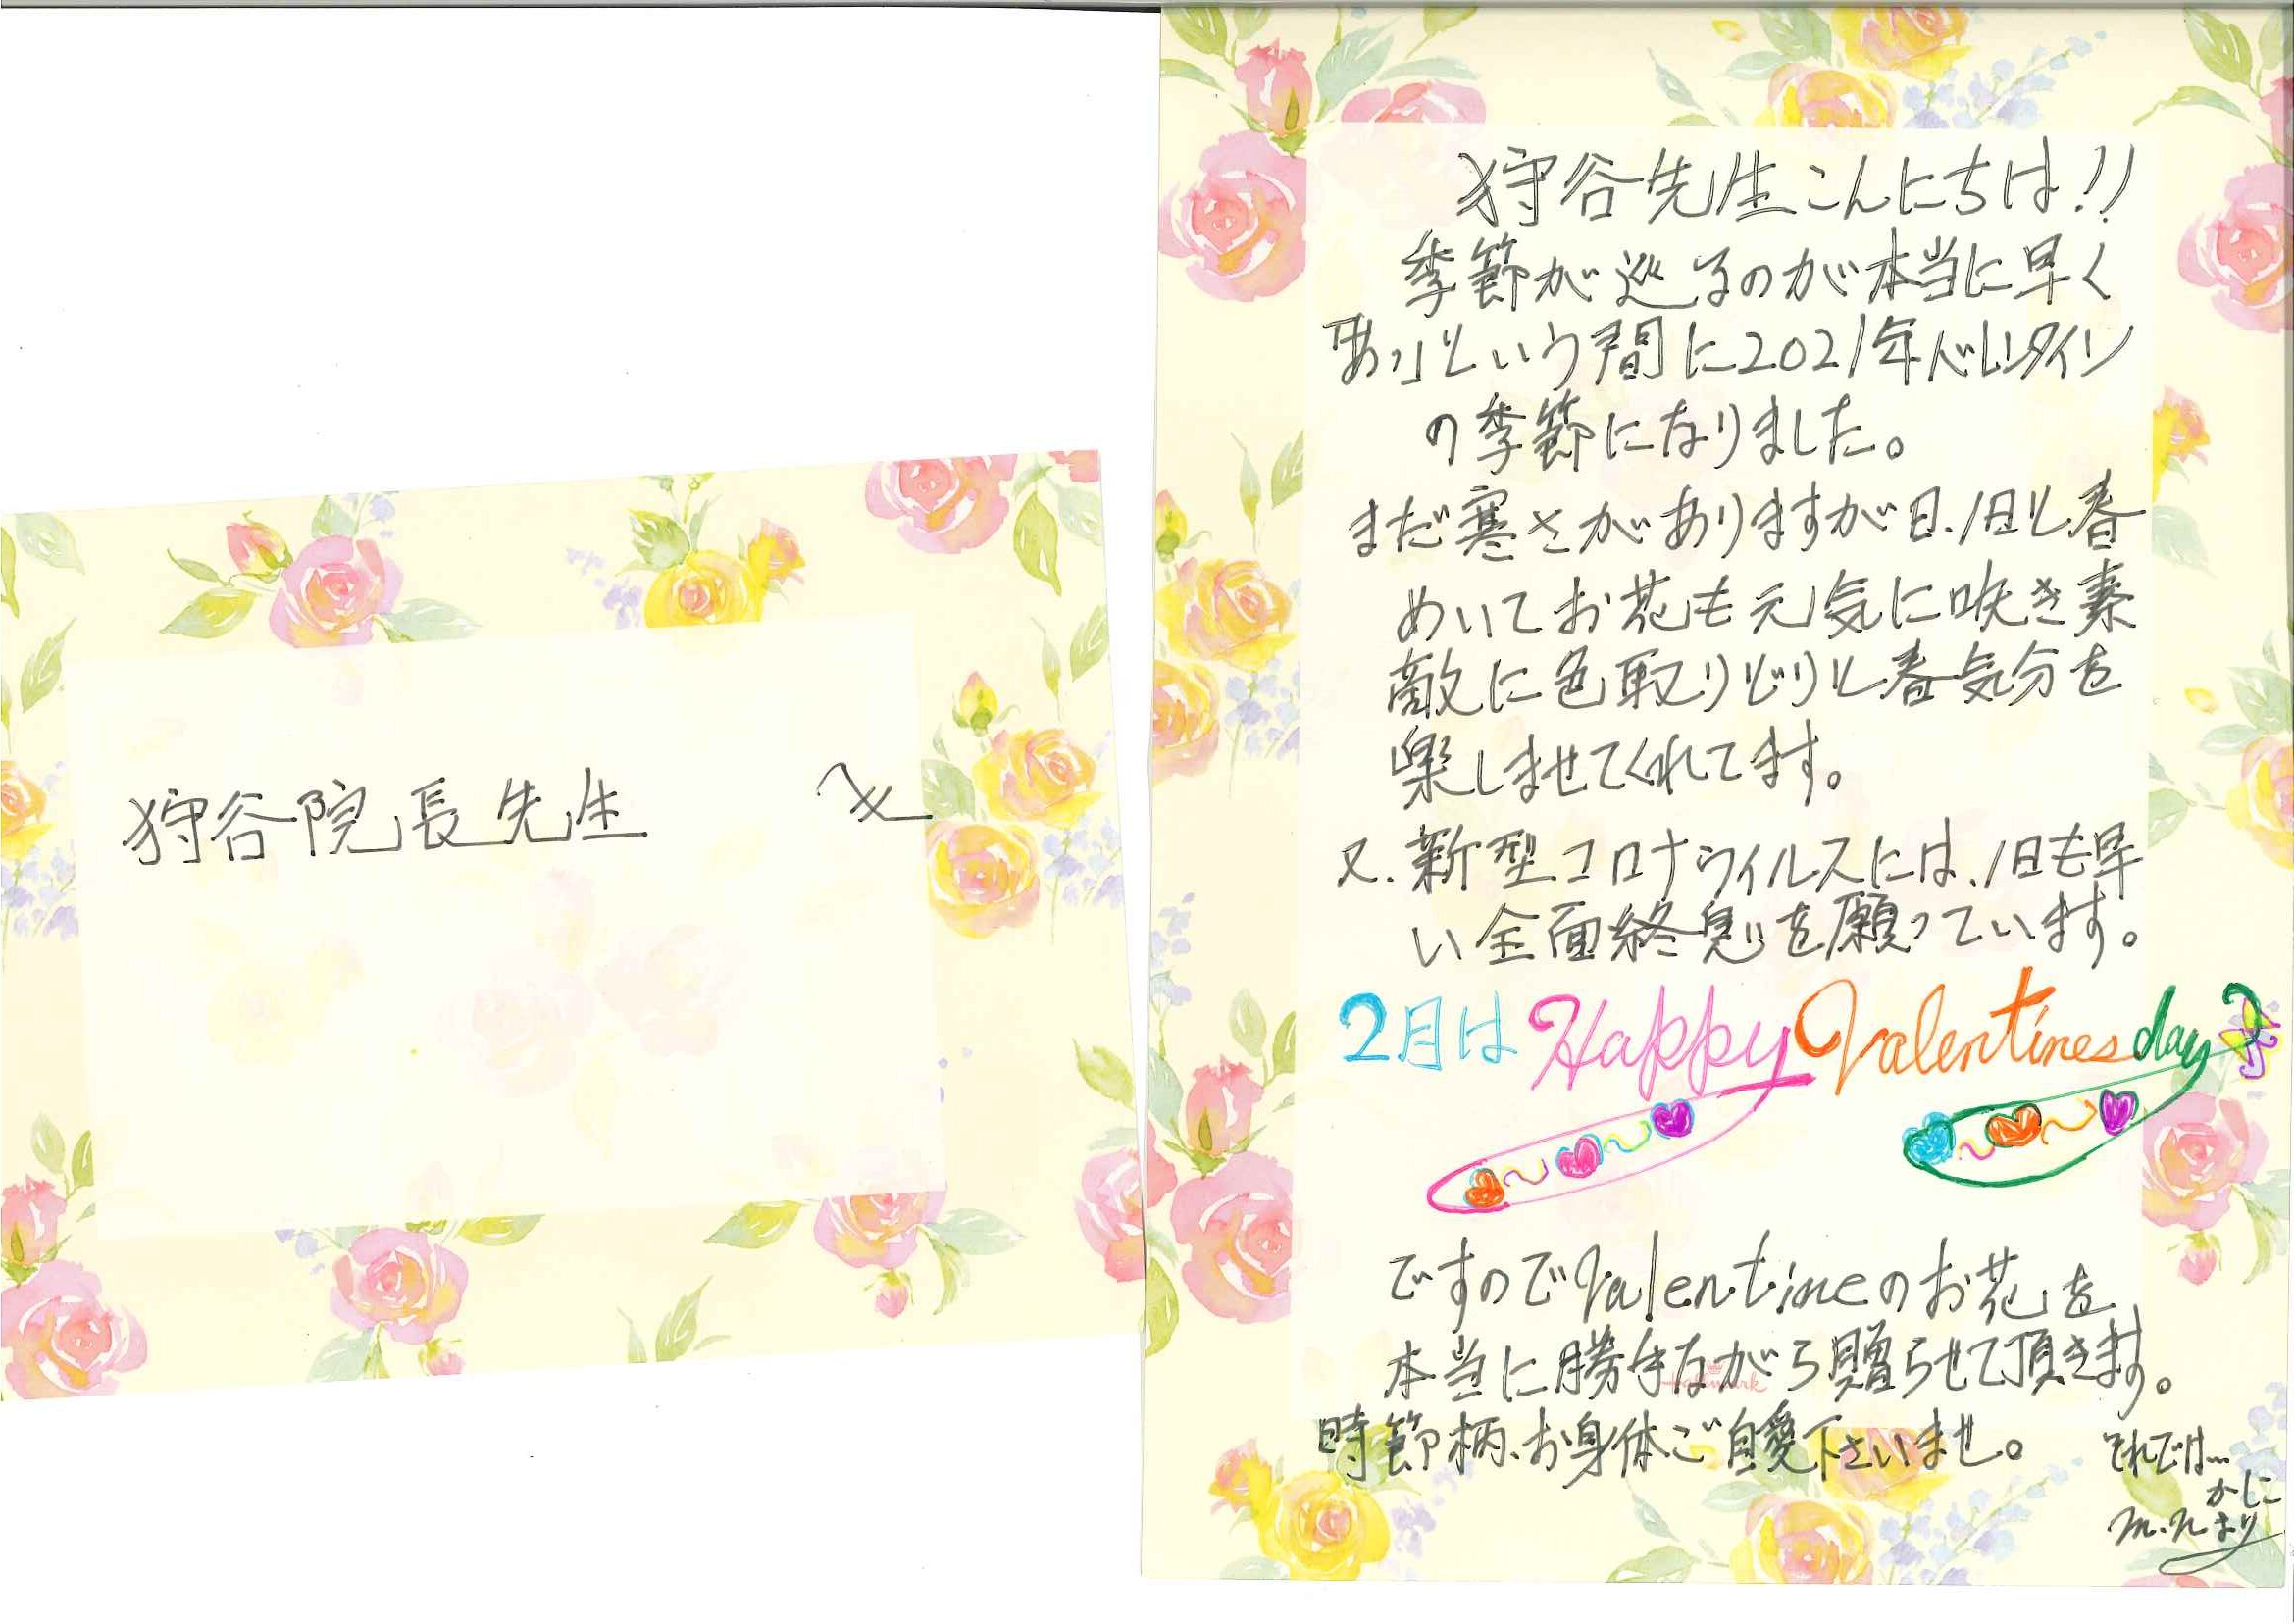 狩谷院長先生 へ
狩谷先生こんにちは!!
季節が巡るのが本当に早く
「あっ」という間に2021年バレンタイン
の季節になりました。
まだ寒さがありますが日、1日と春
めいてお花も元気に咲き素
敵に色取りどりと春気分を
楽しませてくれてます。
又、新型コロナウィルスには、1日も早
い全面終息を願っています。
2月は Happy Valentines day
ですのでValentineのお花を
本当に勝手ながら贈らせて頂きます。
Hallmark
時節柄、お身体ご自愛下さいませ。
それでは…
かしこ
m.n まり